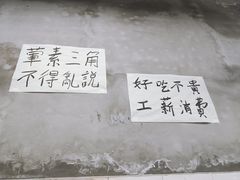 葷素三角
不得亂説
好吃不貴
工薪消費